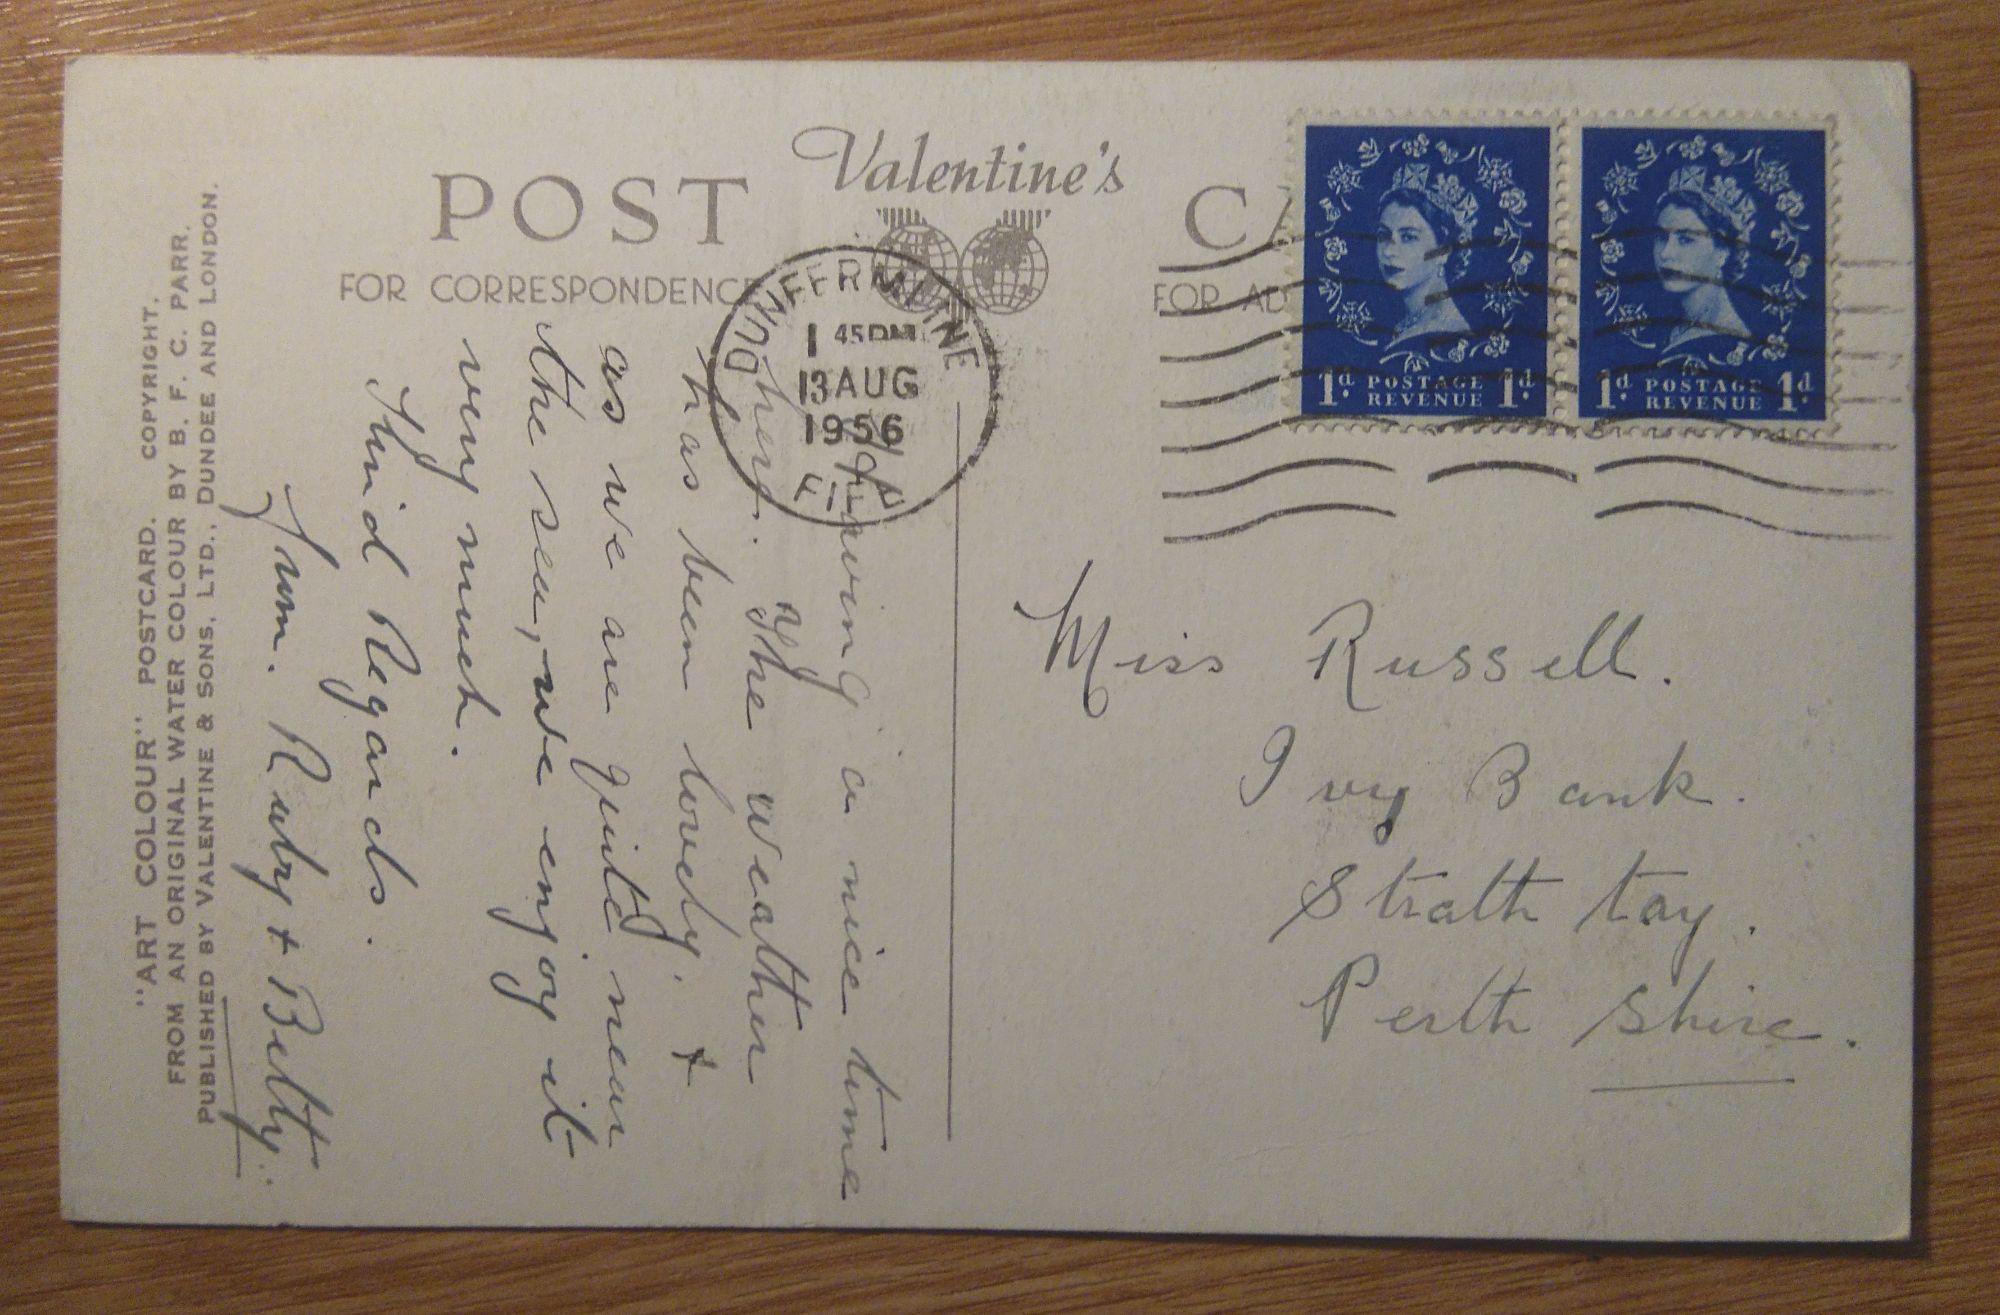 Valentine's
POST CA
FOR CORRESPONDENCE FOR AD
DUNFERMLINE
1 45PM
13 AUG
1956
FIFE
1d POSTAGE REVENUE 1d
1d POSTAGE REVENUE 1d
Having a nice time
here. The weather
has been lovely. +
as we are quite near
the sea, we enjoy it
very much.
Kind Regards.
From. Ruby + Betty.
Miss Russell.
Ivy Bank.
Strath tay.
Perth shire.
"ART COLOUR" POSTCARD. COPYRIGHT.
FROM AN ORIGINAL WATER COLOUR BY B. F. C. PARR.
PUBLISHED BY VALENTINE & SONS, LTD., DUNDEE AND LONDON.